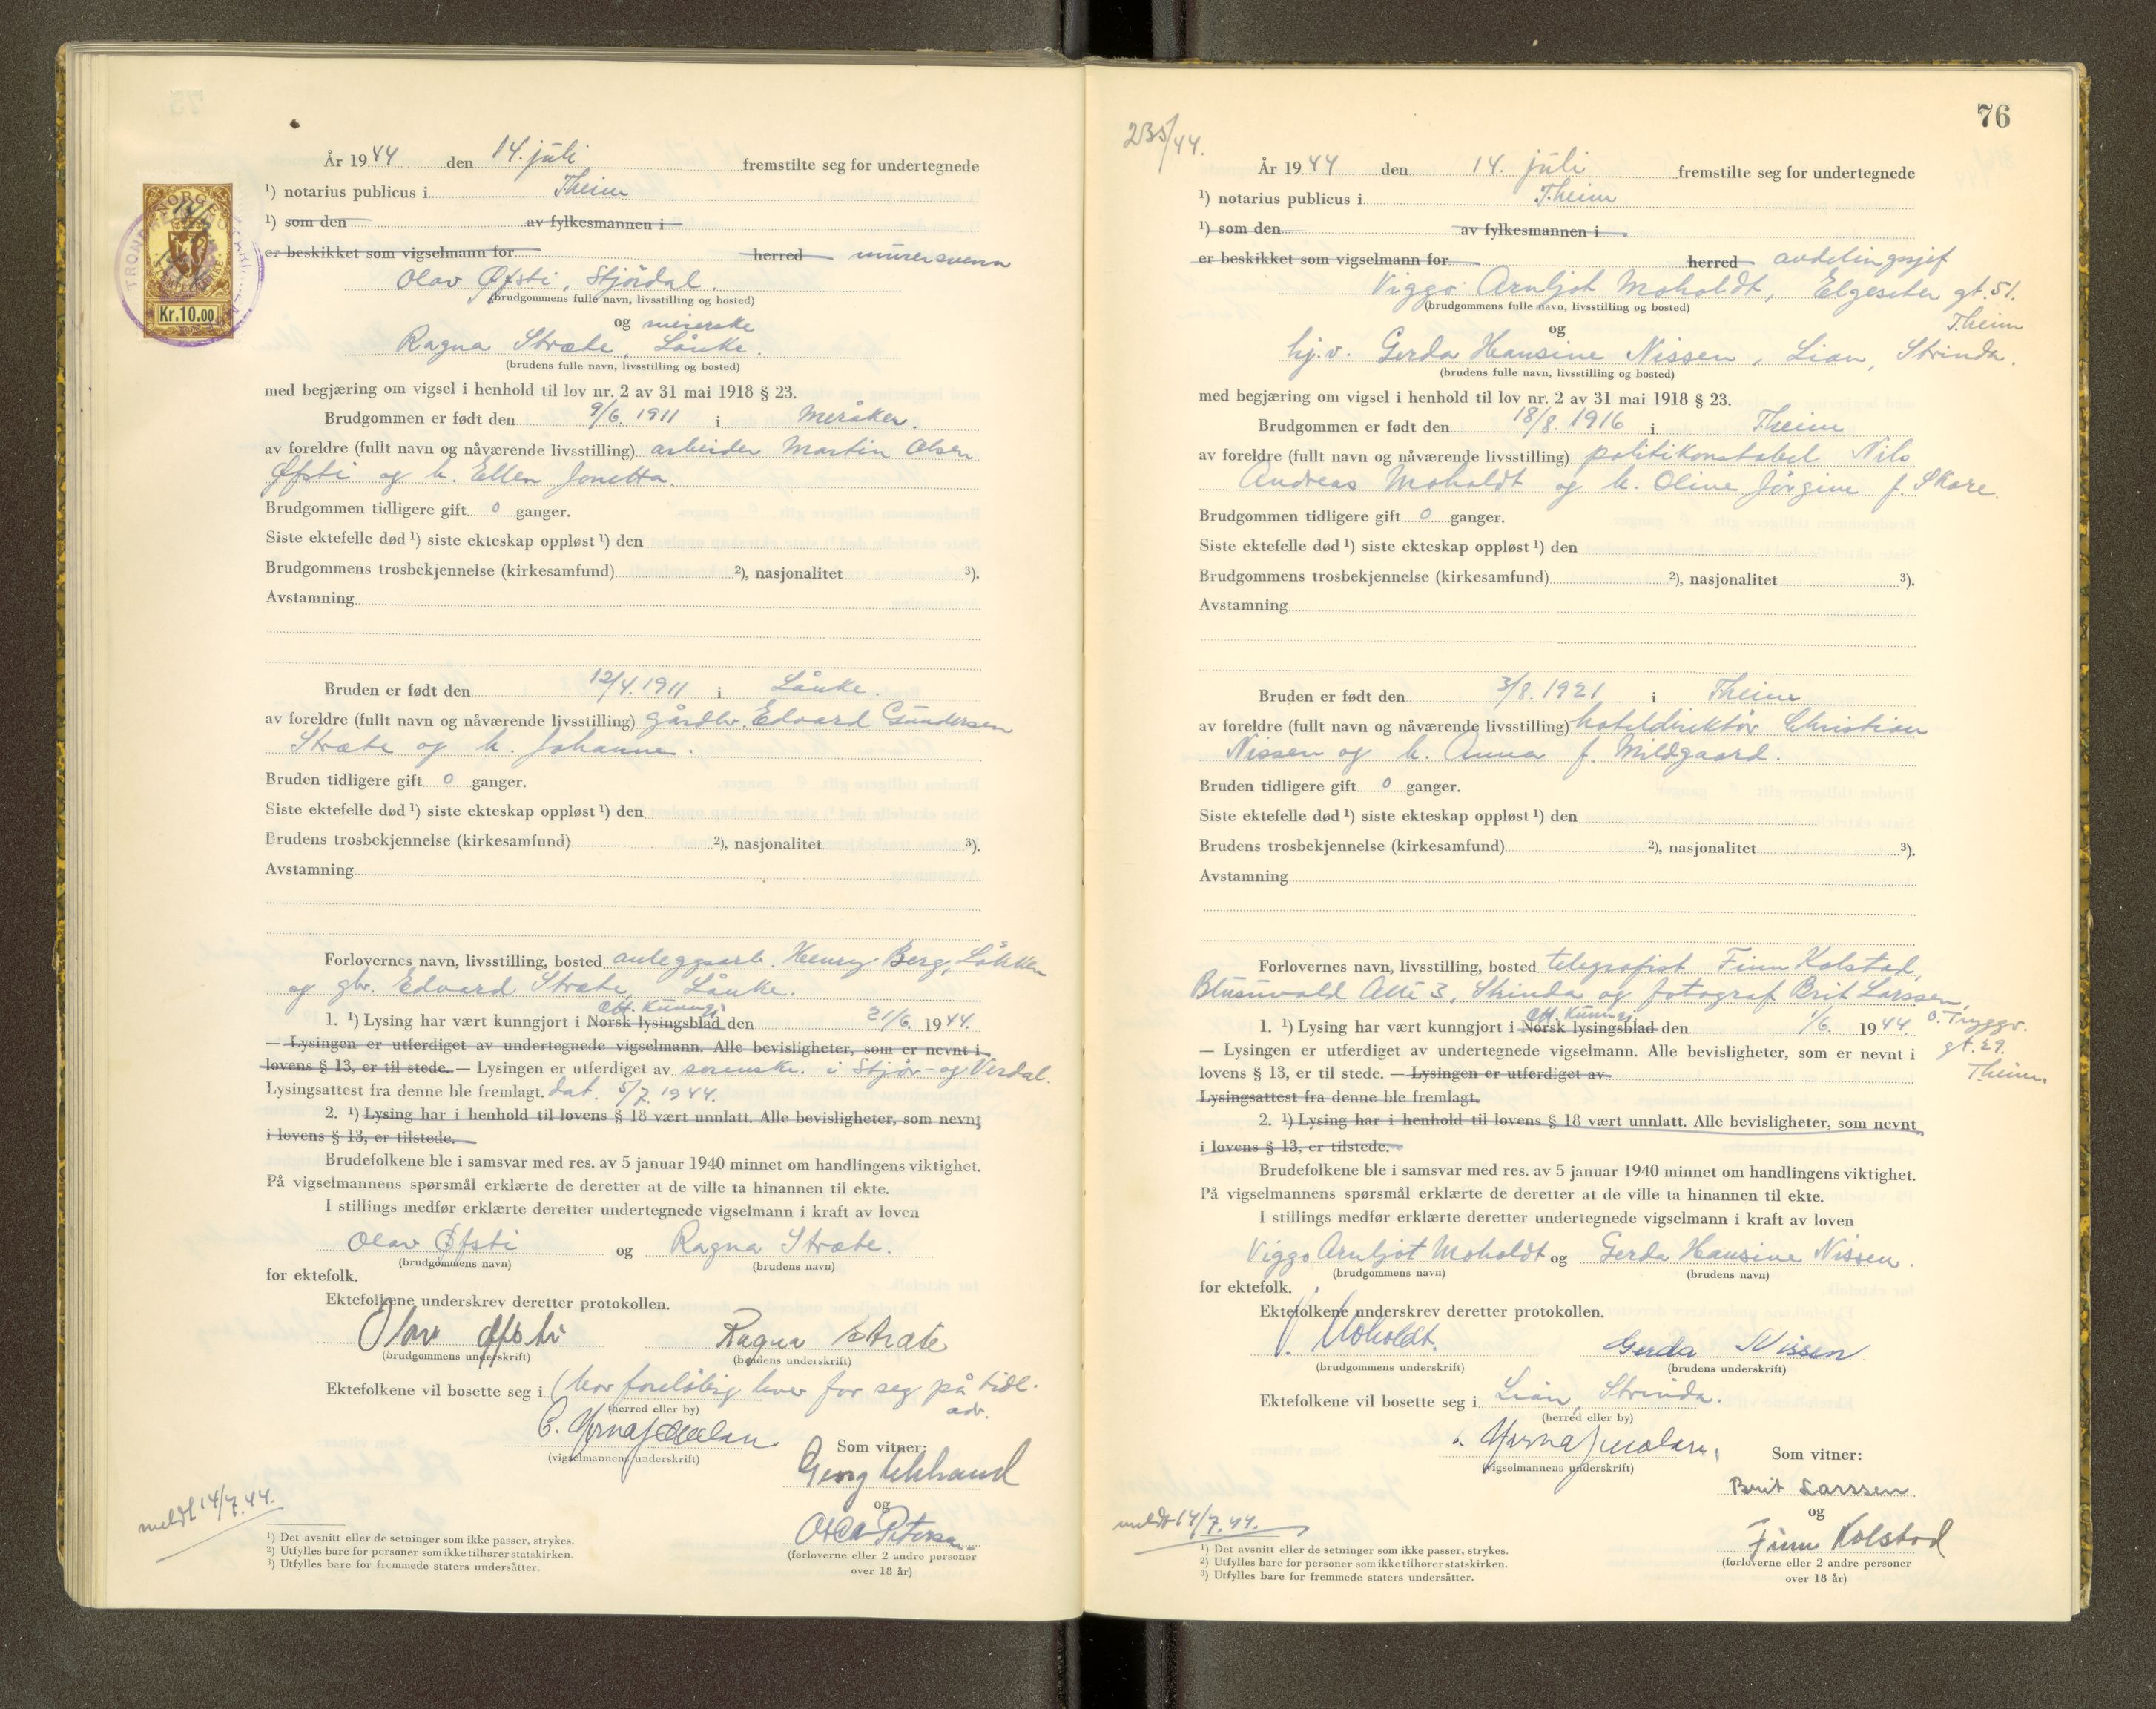 År 1944 den 14. juli fremstilte seg for undertegnede
¹) notarius publicus i Theim
¹) som den av fylkesmannen i
er beskikket som vigselmann for herred murersvenn
Olav Øfsti, Stjørdal.
(brudgommens fulle navn, livsstilling og bosted)
og meierske
Ragna Stræte, Lånke.
(brudens fulle navn, livsstilling og bosted)
med begjæring om vigsel i henhold til lov nr. 2 av 31 mai 1918 § 23.
Brudgommen er født den 9/6. 1911 i Meråker.
av foreldre (fullt navn og nåværende livsstilling) arbeider Martin Olsen
Øfsti og h. Ellen Jonetta.
Brudgommen tidligere gift 0 ganger.
Siste ektefelle død ¹) siste ekteskap oppløst ¹) den
Brudgommens trosbekjennelse (kirkesamfund) ²), nasjonalitet ³).
Avstamning
Bruden er født den 12/4. 1911 i Lånke.
av foreldre (fullt navn og nåværende livsstilling) gårdbr. Edvard Gundersen
Stræte og h. Johanne.
Bruden tidligere gift 0 ganger.
Siste ektefelle død ¹) siste ekteskap oppløst ¹) den
Brudens trosbekjennelse (kirkesamfund) ²), nasjonalitet ³).
Avstamning
Forlovernes navn, livsstilling, bosted anleggsarb. Henry Berg, Løkken
og gbr. Edvard Stræte, Lånke.
Off. Kunngj.
1. ¹) Lysing har vært kunngjort i Norsk lysingsblad den 21/6. 1944.
— Lysingen er utferdiget av undertegnede vigselmann. Alle bevisligheter, som er nevnt i
lovens § 13, er til stede. — Lysingen er utferdiget av sorenskr. i Stjør- og Verdal.
Lysingsattest fra denne ble fremlagt. dat. 5/7. 1944.
2. ¹) Lysing har i henhold til lovens § 18 vært unnlatt. Alle bevisligheter, som nevnt
i lovens § 13, er tilstede.
Brudefolkene ble i samsvar med res. av 5 januar 1940 minnet om handlingens viktighet.
På vigselmannens spørsmål erklærte de deretter at de ville ta hinannen til ekte.
I stillings medfør erklærte deretter undertegnede vigselmann i kraft av loven
Olav Øfsti og Ragna Stræte.
(brudgommens navn) (brudens navn)
for ektefolk.
Ektefolkene underskrev deretter protokollen.
Olav Øfsti Ragna Stræte
(brudgommens underskrift) (brudens underskrift)
Ektefolkene vil bosette seg i (bor foreløbig hver for seg på tidl.
adr.
(herred eller by)
(vigselmannens underskrift)
Som vitner:
Georg
og
Petersen
(forloverne eller 2 andre personer
over 18 år)
meldt 14/7.44.
¹) Det avsnitt eller de setninger som ikke passer, strykes.
²) Utfylles bare for personer som ikke tilhører statskirken.
³) Utfylles bare for fremmede staters undersåtter.
NORGE
Kr.10.00
76
235/44.
År 1944 den 14. juli fremstilte seg for undertegnede
¹) notarius publicus i Theim
¹) som den av fylkesmannen i
er beskikket som vigselmann for herred avdelingssjef
Viggo Arnljot Moholdt, Elgeseter gt. 51.
Theim
(brudgommens fulle navn, livsstilling og bosted)
og
hj.v. Gerda Hansine Nissen, Lian, Strinda.
(brudens fulle navn, livsstilling og bosted)
med begjæring om vigsel i henhold til lov nr. 2 av 31 mai 1918 § 23.
Brudgommen er født den 18/8. 1916 i Theim
av foreldre (fullt navn og nåværende livsstilling) politikonstabel Nils
Andreas Moholdt og h. Oline Jørgine f. Skare.
Brudgommen tidligere gift 0 ganger.
Siste ektefelle død ¹) siste ekteskap oppløst ¹) den
Brudgommens trosbekjennelse (kirkesamfund) ²), nasjonalitet ³).
Avstamning
Bruden er født den 3/8. 1921 i Theim
av foreldre (fullt navn og nåværende livsstilling) hotelldirektør Christian
Nissen og h. Anna f. Mildgaard.
Bruden tidligere gift 0 ganger.
Siste ektefelle død ¹) siste ekteskap oppløst ¹) den
Brudens trosbekjennelse (kirkesamfund) ²), nasjonalitet ³).
Avstamning
Forlovernes navn, livsstilling, bosted telegrafist Finn Kolstad,
Blusuvold Allé 3, Strinda og fotograf Brit Larssen,
O. Tryggv.
gt. 29.
Theim.
Off. Kunngj.
1. ¹) Lysing har vært kunngjort i Norsk lysingsblad den 1/6. 1944.
— Lysingen er utferdiget av undertegnede vigselmann. Alle bevisligheter, som er nevnt i
lovens § 13, er til stede. — Lysingen er utferdiget av
Lysingsattest fra denne ble fremlagt.
2. ¹) Lysing har i henhold til lovens § 18 vært unnlatt. Alle bevisligheter, som nevnt
i lovens § 13, er tilstede.
Brudefolkene ble i samsvar med res. av 5 januar 1940 minnet om handlingens viktighet.
På vigselmannens spørsmål erklærte de deretter at de ville ta hinannen til ekte.
I stillings medfør erklærte deretter undertegnede vigselmann i kraft av loven
Viggo Arnljot Moholdt og Gerda Hansine Nissen.
(brudgommens navn) (brudens navn)
for ektefolk.
Ektefolkene underskrev deretter protokollen.
V. Moholdt. Gerda Nissen
(brudgommens underskrift) (brudens underskrift)
Ektefolkene vil bosette seg i Lian, Strinda.
(herred eller by)
(vigselmannens underskrift)
Som vitner:
Brit Larssen
og
Finn Kolstad
(forloverne eller 2 andre personer
over 18 år)
meldt 14/7.44.
¹) Det avsnitt eller de setninger som ikke passer, strykes.
²) Utfylles bare for personer som ikke tilhører statskirken.
³) Utfylles bare for fremmede staters undersåtter.